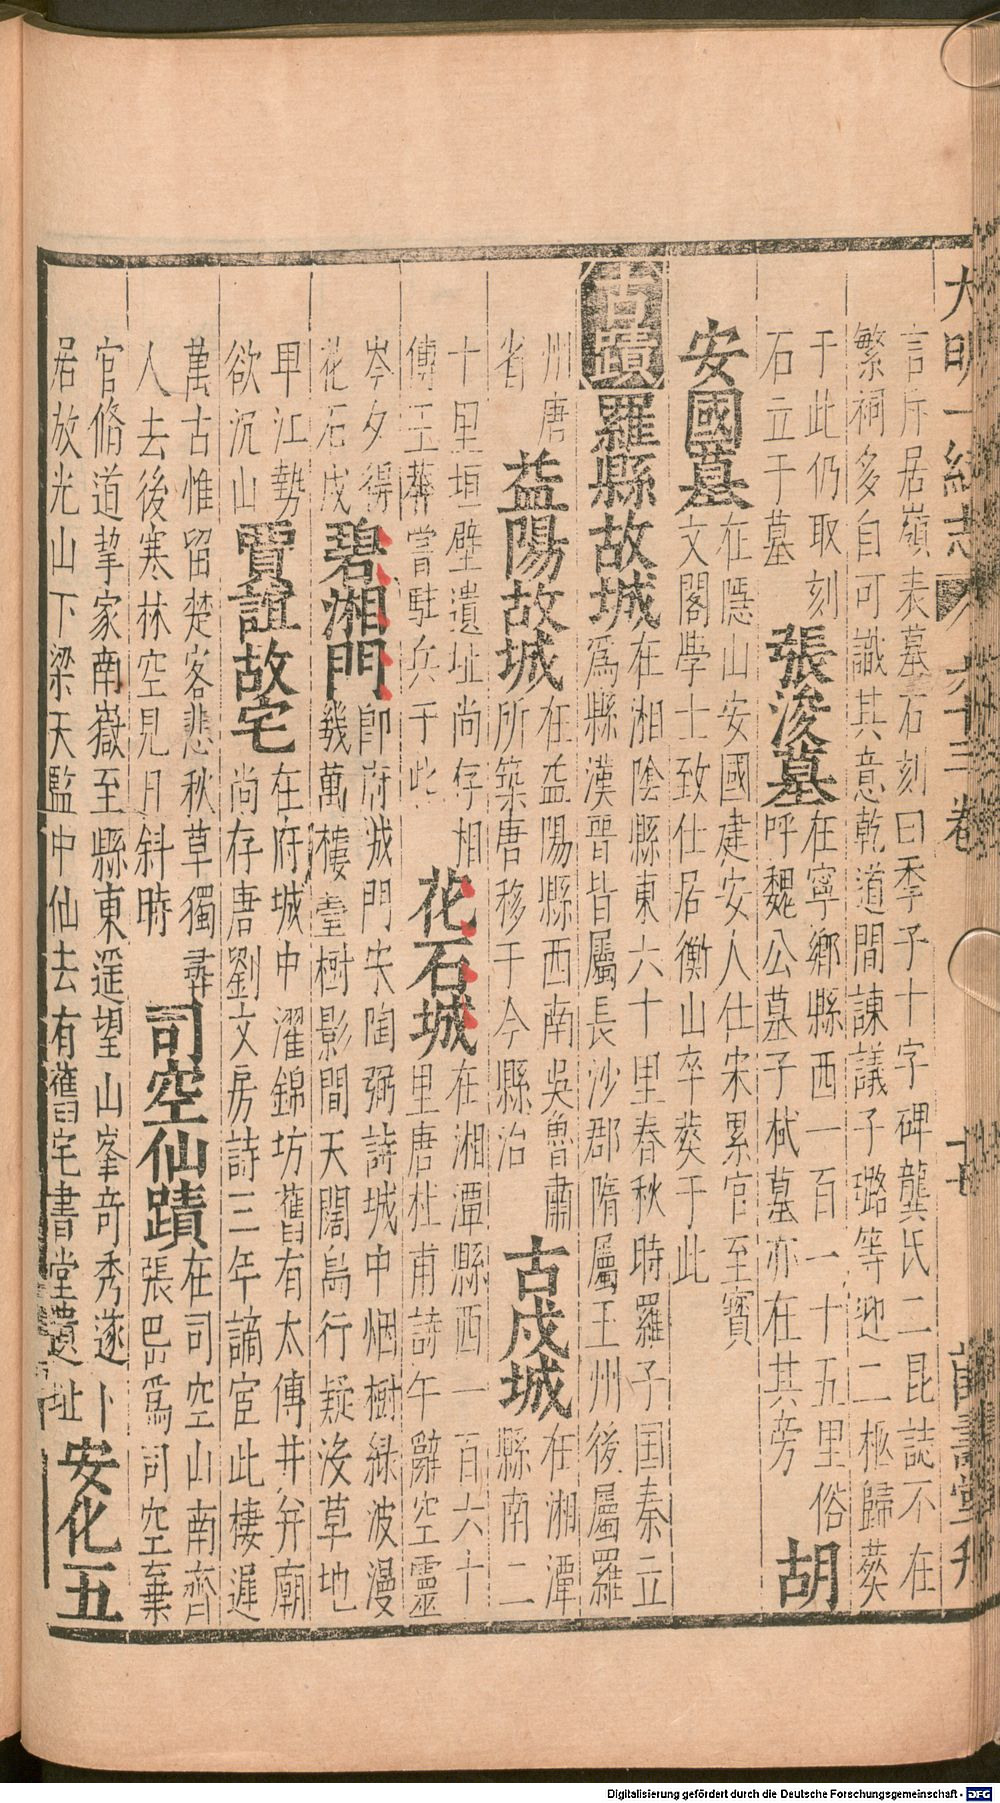 大明一統志 六十三卷
言斥居嶺表墓石刻曰季子十字碑龔氏二昆誌不在
繁祠多自可識其意乾道間諫議子璐等迎二柩歸葬
于此仍取刻
石立于墓
張浚墓
在寧鄉縣西一百一十五里俗
呼魏公墓子栻墓亦在其旁
胡
安國墓
在隱山安國建安人仕宋累官至寳
文閣學士致仕居衡山卒葬于此
古蹟
羅縣故城
在湘陰縣東六十里春秋時羅子国秦立
爲縣漢晉皆屬長沙郡隋屬玉州後屬羅
州唐
省
益陽故城
在益陽縣西南吳魯肅
所築唐移于今縣治
古戍城
在湘潭
縣南二
十里垣壁遺址尚存相
傳王莽嘗駐兵于此
花石城
在湘潭縣西一百六十
里唐杜甫詩午辭空靈
岑夕得
花石戍
碧湘門
即府城門宋陶弼詩城中烟樹緑波漫
幾萬樓臺樹影間天闊鳥行疑没草地
卑江勢
欲沉山
賈誼故宅
在府城中濯錦坊舊有太傅井并廟
尚存唐劉文房詩三年謫宦此棲遲
萬古惟留楚客悲秋草獨尋
人去後寒林空見月斜時
司空仙蹟
在司空山南齊
張岊爲司空棄
官脩道挈家南嶽至縣東遥望山峯竒秀遂卜
居放光山下梁天監中仙去有舊宅書堂遺址
安化五
Digitalisierung gefördert durch die Deutsche Forschungsgemeinschaft - DFG